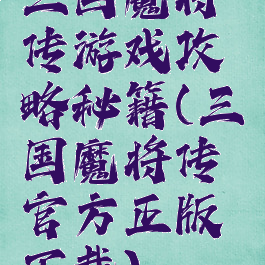 三国魔将
传游戏攻
略秘籍(三
国魔将传
官方正版
下载)